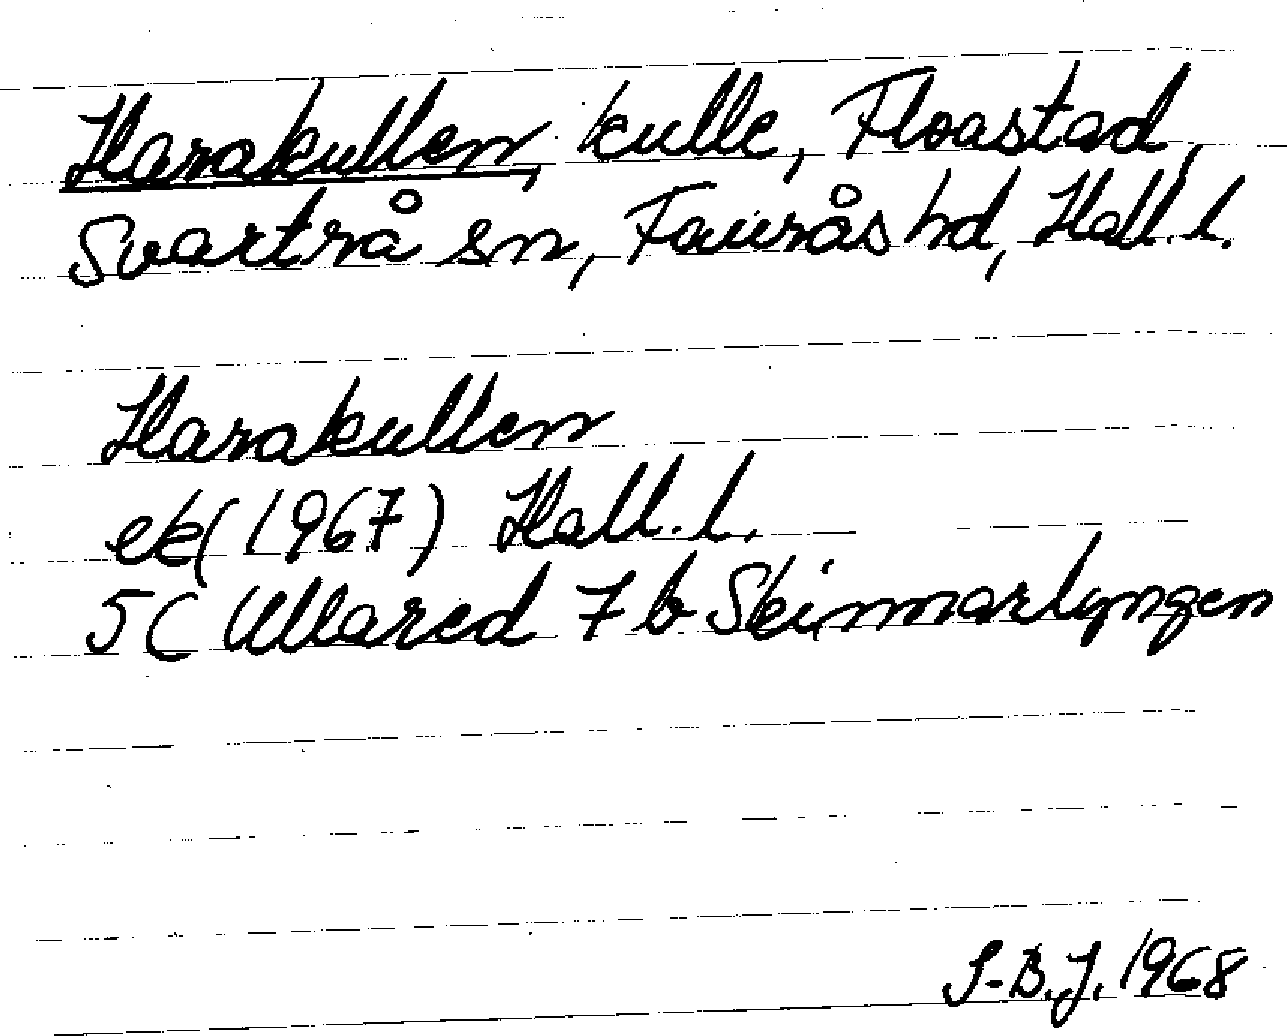 Harakullen, kulle, Floastad,
Svartrå sn, Faurås hd, Hall. l.
Harakullen
ek (1967) Hall. l.
5C Ullared 7b Skinmarlyngen
S-B.J. 1968